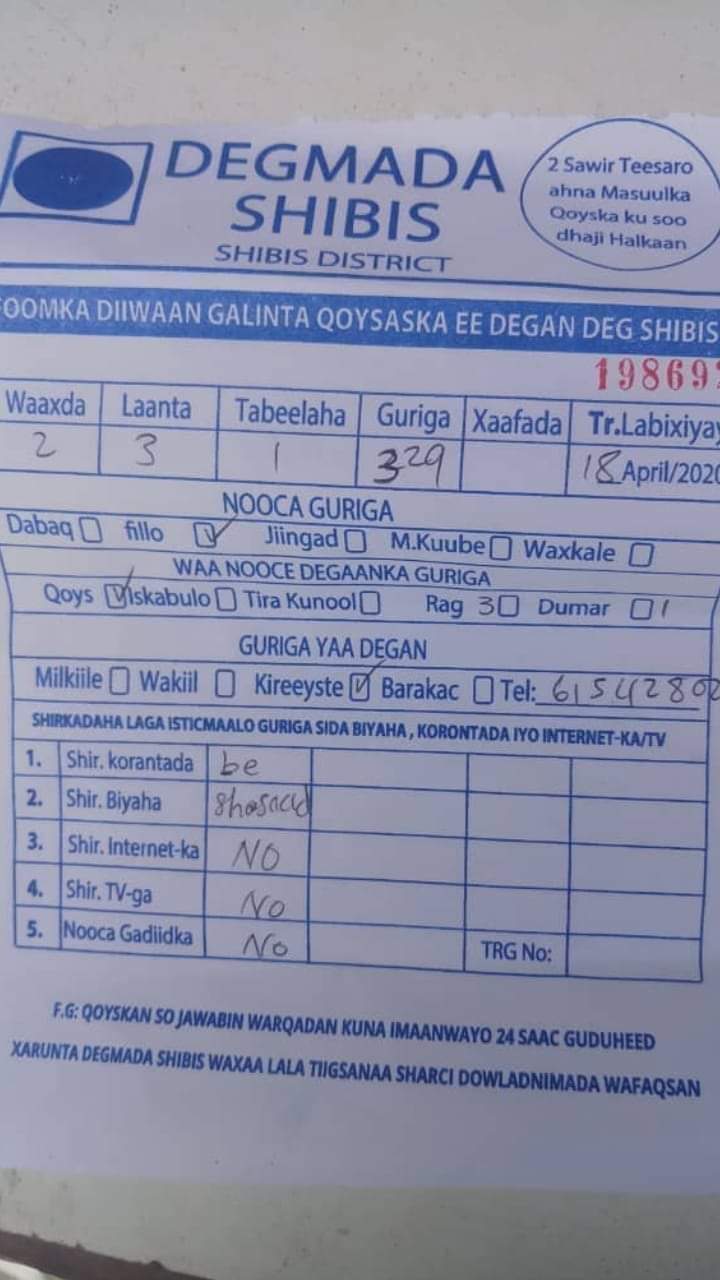 DEGMADA
SHIBIS
SHIBIS DISTRICT
2 Sawir Teesaro
ahna Masuulka
Qoyska ku soo
dhaji Halkaan
FOOMKA DIIWAAN GALINTA QOYSASKA EE DEGAN DEG SHIBIS
19869
Waaxda Laanta Tabeelaha Guriga Xaafada Tr.Labixiyay
2 3 1 329 18 April/2020
NOOCA GURIGA
Dabaq fillo Jiingad M.Kuube Waxkale
WAA NOOCE DEGAANKA GURIGA
Qoys Iskabulo Tira Kunool Rag 3 Dumar 1
GURIGA YAA DEGAN
Milkiile Wakiil Kireeyste Barakac Tel: 61542800
SHIRKADAHA LAGA ISTICMAALO GURIGA SIDA BIYAHA , KORONTADA IYO INTERNET-KA/TV
1. Shir. korantada be
2. Shir. Biyaha
3. Shir. Internet-ka NO
4. Shir. TV-ga No
5. Nooca Gadiidka No TRG No:
F.G: QOYSKAN SO JAWABIN WARQADAN KUNA IMAANWAYO 24 SAAC GUDUHEED
XARUNTA DEGMADA SHIBIS WAXAA LALA TIIGSANAA SHARCI DOWLADNIMADA WAFAQSAN